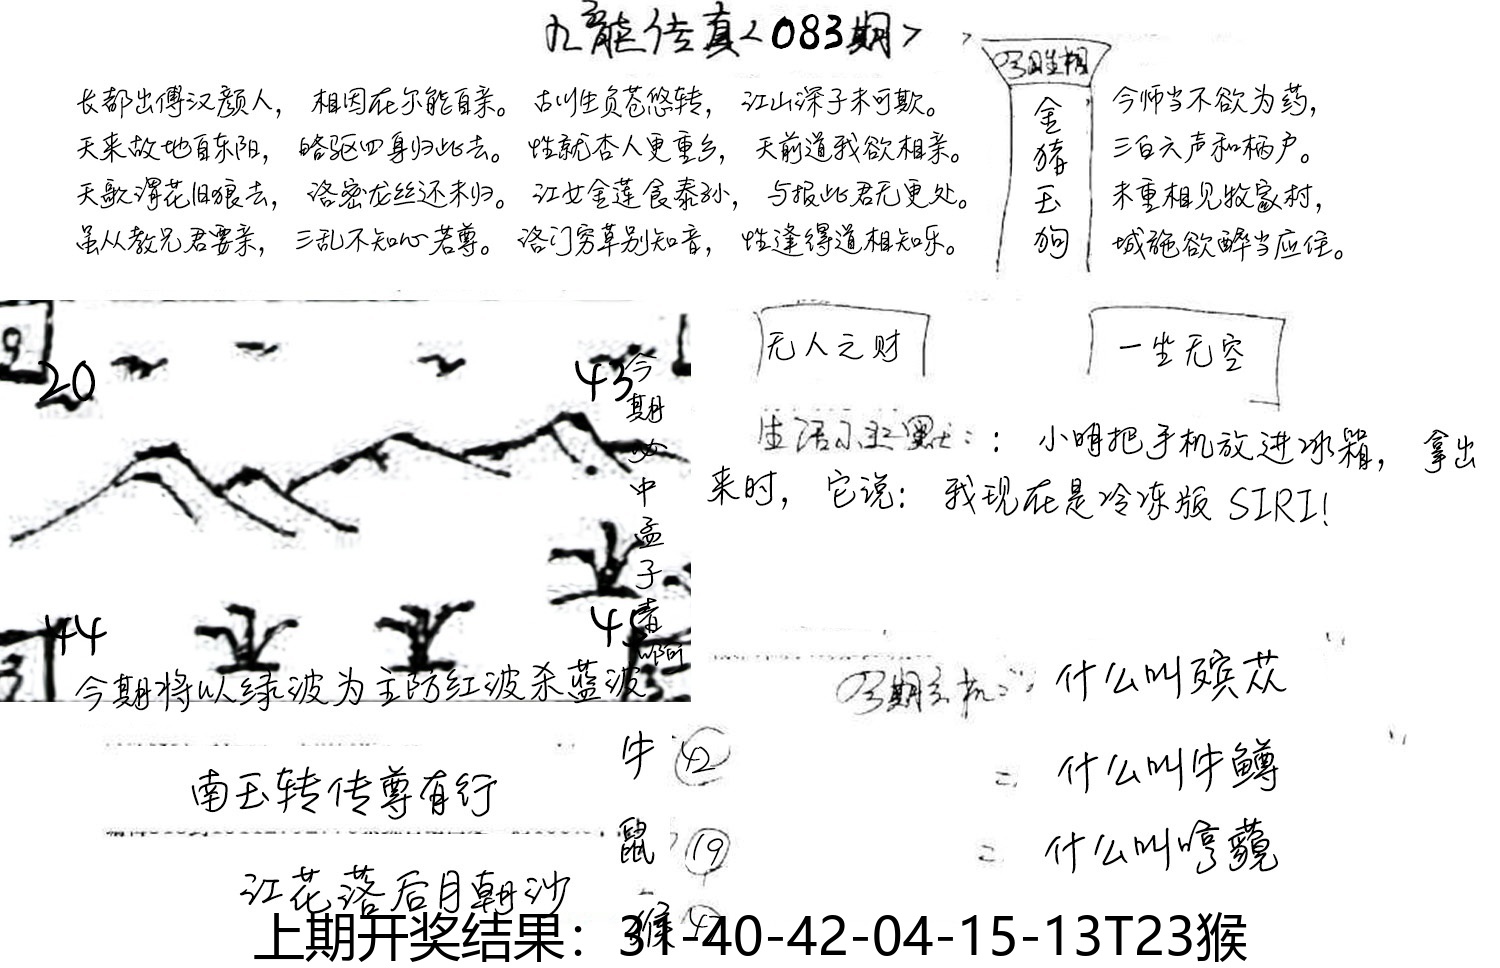 九龍传真<083期>
长都出傅汉颜人， 相因在尔能自亲。 古川生负苍悠转， 江山深子未可欺。
天来故地自东阳， 皓驱四身归此去。 性就杏人更重乡， 天前道我欲相亲。
天歌谓花旧狼去， 洛密龙丝还未归。 江女金莲食泰孙， 与报此君无更处。
虽从教兄君要亲， 三乱不知心若尊。 洛门穷草别知音， 性逢得道相知乐。
金猪玉狗
今师当不欲为药，
三百六声和柄户。
未重相见牧家村，
城施欲醉当应住。
无人之财
一坐无空
20
43
今期必中孟子青啊
44
今期将以绿波为主防红波杀蓝波
生活小幽默：：小明把手机放进冰箱， 拿出
来时， 它说： 我现在是冷冻版 SIRI！
什么叫殡苁
什么叫牛鳟
什么叫哼藐
南玉转传尊有行
江花落后月朝沙
牛 42
鼠 19
猴
上期开奖结果：31-40-42-04-15-13T23猴